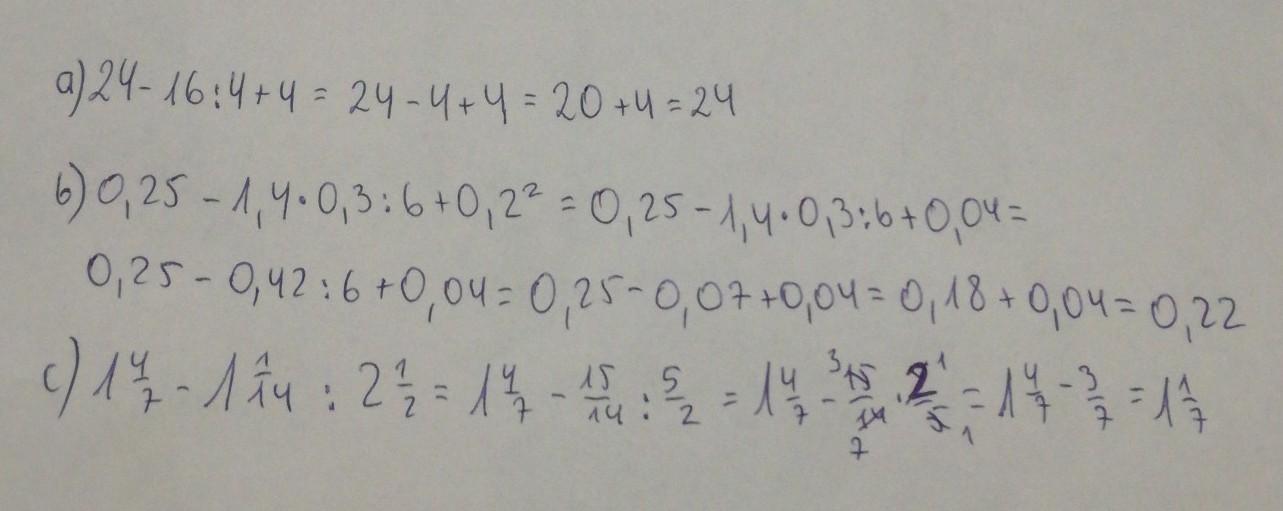 a) 24 - 16 : 4 + 4 = 24 - 4 + 4 = 20 + 4 = 24
b) 0,25 - 1,4 · 0,3 : 6 + 0,2² = 0,25 - 1,4 · 0,3 : 6 + 0,04 =
0,25 - 0,42 : 6 + 0,04 = 0,25 - 0,07 + 0,04 = 0,18 + 0,04 = 0,22
c) 1 4/7 - 1 1/14 : 2 1/2 = 1 4/7 - 15/14 : 5/2 = 1 4/7 - ³15/14₇ · 2¹/5₁ = 1 4/7 - 3/7 = 1 1/7